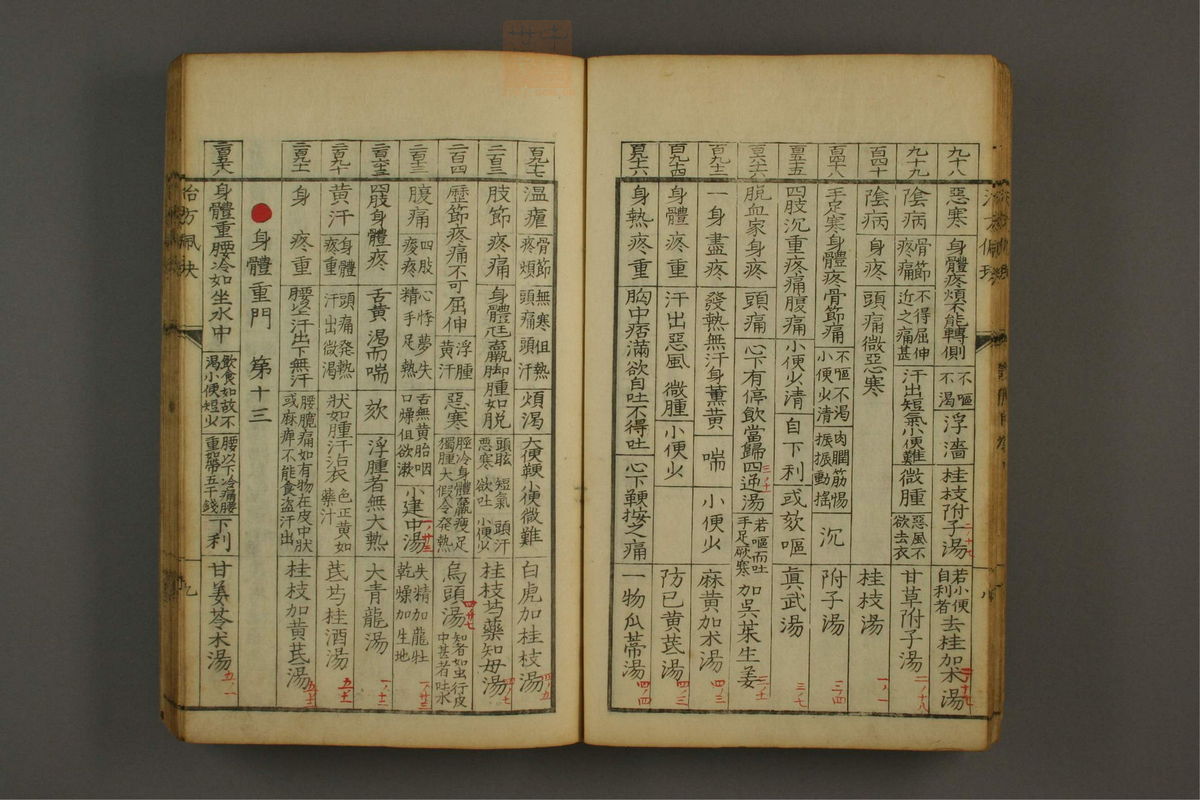 九十八 惡寒 身體疼煩不能轉側 不嘔不渴 浮濇 桂枝附子湯 若小便自利者 去桂加朮湯
九十九 陰病 骨節疼痛 不得屈伸近之痛甚 汗出短氣小便難 微腫 惡風不欲去衣 甘草附子湯
百四十 陰病 身疼 頭痛微惡寒 桂枝湯
百四十八 手足寒身體疼骨節痛 不嘔不渴小便少清 肉瞤筋惕振振動搖 沉 附子湯
四肢沉重疼痛腹痛 小便少清 自下利 或欬嘔 眞武湯
脫血家身疼 頭痛 心下有停飲當歸四逆湯 若嘔而吐手足厥寒 加吳茱生姜
一身盡疼 發熱無汗身薰黃 喘 小便少 麻黃加朮湯
百九十四 身體疼重 汗出惡風 微腫 小便少 防已黃芪湯
身熱疼重 胸中痞滿欲自吐不得吐 心下鞕按之痛 一物瓜蒂湯
治方佩玦 八
百九十七 溫瘧 骨節疼煩 無寒但熱頭痛頭汗 煩渴 大便鞕小便微難 白虎加桂枝湯
二百三 肢節疼痛 身體尫羸脚腫如脫 頭眩短氣惡寒欲吐 頭汗小便少 桂枝芍藥知母湯
二百四 歷節疼痛不可屈伸 浮腫黃汗 惡寒 脛冷身體羸瘦足獨腫大假令發熱 烏頭湯 知者如虫行皮中甚者吐水
腹痛 四肢痠疼 心悸夢失精手足熱 舌無黃胎咽口燥但欲漱 小建中湯 失精加龍牡乾燥加生地
四肢身體疼 舌黃渴而喘 欬 浮腫者無大熱 大青龍湯
二百九十 黃汗 身體疼重 頭痛發熱汗出微渴 狀如腫汗沾衣 色正黃如藥汁 芪芍桂酒湯
二百九十一 身疼重 腰上汗出下無汗 腰髖痛如有物在皮中狀或麻痺不能食盜汗出 桂枝加黃芪湯
身體重門 第十三
二百五十八 身體重腰冷如坐水中 飲食如故不渴小便短少 腰以下冷痛腰重如帶五千錢 下利 甘姜苓朮湯
治方佩玦 九